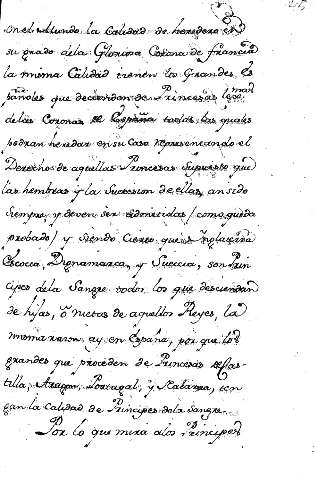 en el Mundo la Calidad de heredero en
su grado dela Gloriosa Corona de francia
la misma Calidad tienen los Grandes, Es
pañoles que decienden de Princesas lexmas
delas Coronas de España todas, los quales
podran heredar en su Caso representando el
Derecho de aquellas Princesas Supuesto que
las hembras y la Succesion de ellas, an sido
siempre, y deven ser admetidas / como queda
probado / y siendo Cierto que en Inglaterra
Escocia, Dignamarca, y Suecia, son Prin
cipes dela Sangre todos los que descienden
de hijas, ô Nietas de aquellos Reyes, la
misma razon ay en España, por que los
grandes que proceden de Princesas de Cas
tilla, Aragon, Portugal, y Nabarra, ten
gan la Calidad de Principes dela Sangre.
Por lo que mira a los Principes